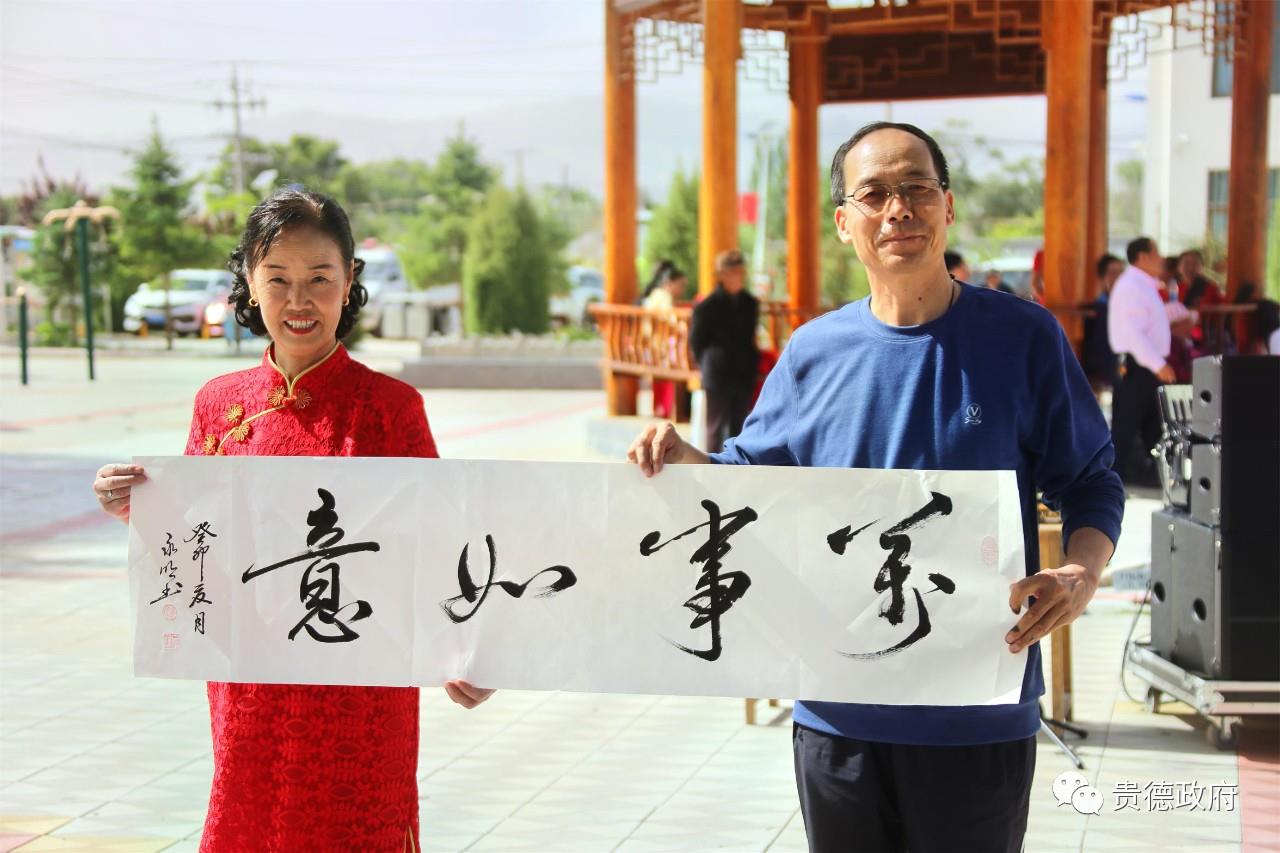 萬事如意
癸卯夏月
永明书
贵德政府